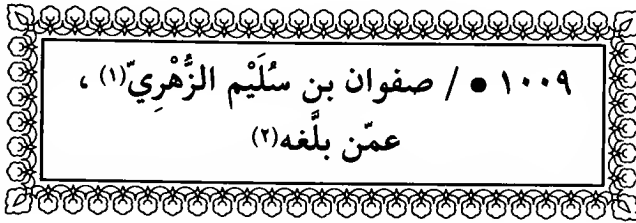 ١٠٠٩ ● / صفوان بن سُلَيْم الزُّهْرِيّ(١) ،
عمّن بلَّغه(٢)